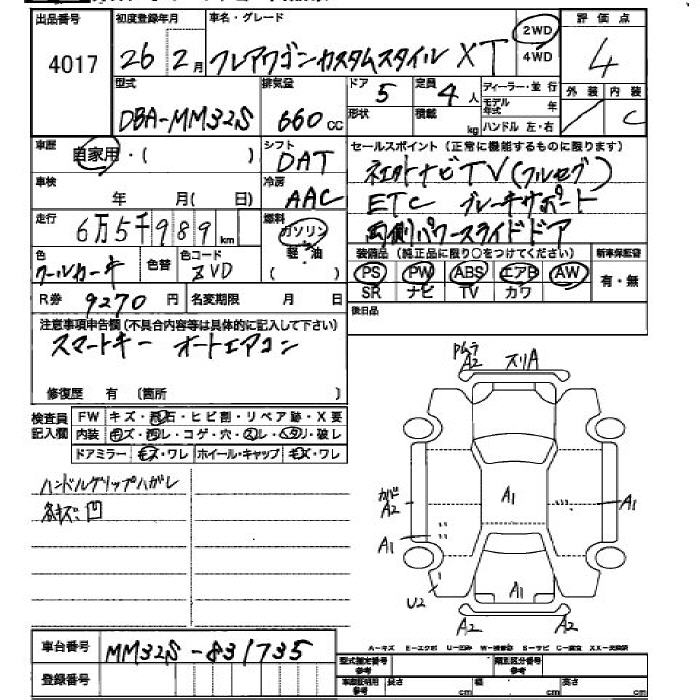 出品番号 初度登録年月 車名・グレード 評価点
4017 26年 2月 フレアワゴンカスタムスタイル XT 2WD 4WD 4
型式 排気量 ドア 定員 ディーラー・並行 外装 内装
DBA-MM32S 660cc 5 4人 モデル年式 年 C
形状 積載 kg ハンドル 左・右
車歴 自家用・( ) シフト DAT セールスポイント(正常に機能するものに限ります)
車検 年 月( 日) 冷房 AAC 社外ナビTV(フルセグ)
ETC ブレーキサポート
走行 6万5千989km 燃料 ガソリン 軽・油 ( ) 両側パワースライドドア
装備品(純正品に限り○をつけてください) 新車保証書
色 クールカーキ 色替 色コード ZVD PS PW ABS エアB AW 有・無
SR ナビ TV カワ
R券 9270円 名変期限 月 日 後日品
注意事項申告欄(不具合内容等は具体的に記入して下さい)
スマートキー オートエアコン
修復歴 有 〔箇所 〕
検査員記入欄 FW キズ・飛石・ヒビ割・リペア跡・X要
内装 キズ・汚レ・コゲ・穴・スレ・ヘタリ・破レ
ドアミラー キズ・ワレ ホイール・キャップ キズ・ワレ
ハンドルグリップハガレ
各キズ凹
PMムラ
A2 スリA
カバド
A2 A1 A1
A1
U2 A1
A2 A2
A-キズ E-エクボ U-凹み W-補修跡 S-サビ C-腐食 XX-交換済
車台番号 MM32S-831735
登録番号
型式指定番号 参考 類別区分番号 参考
車庫証明用 参考 長さ cm 幅 cm 高さ cm